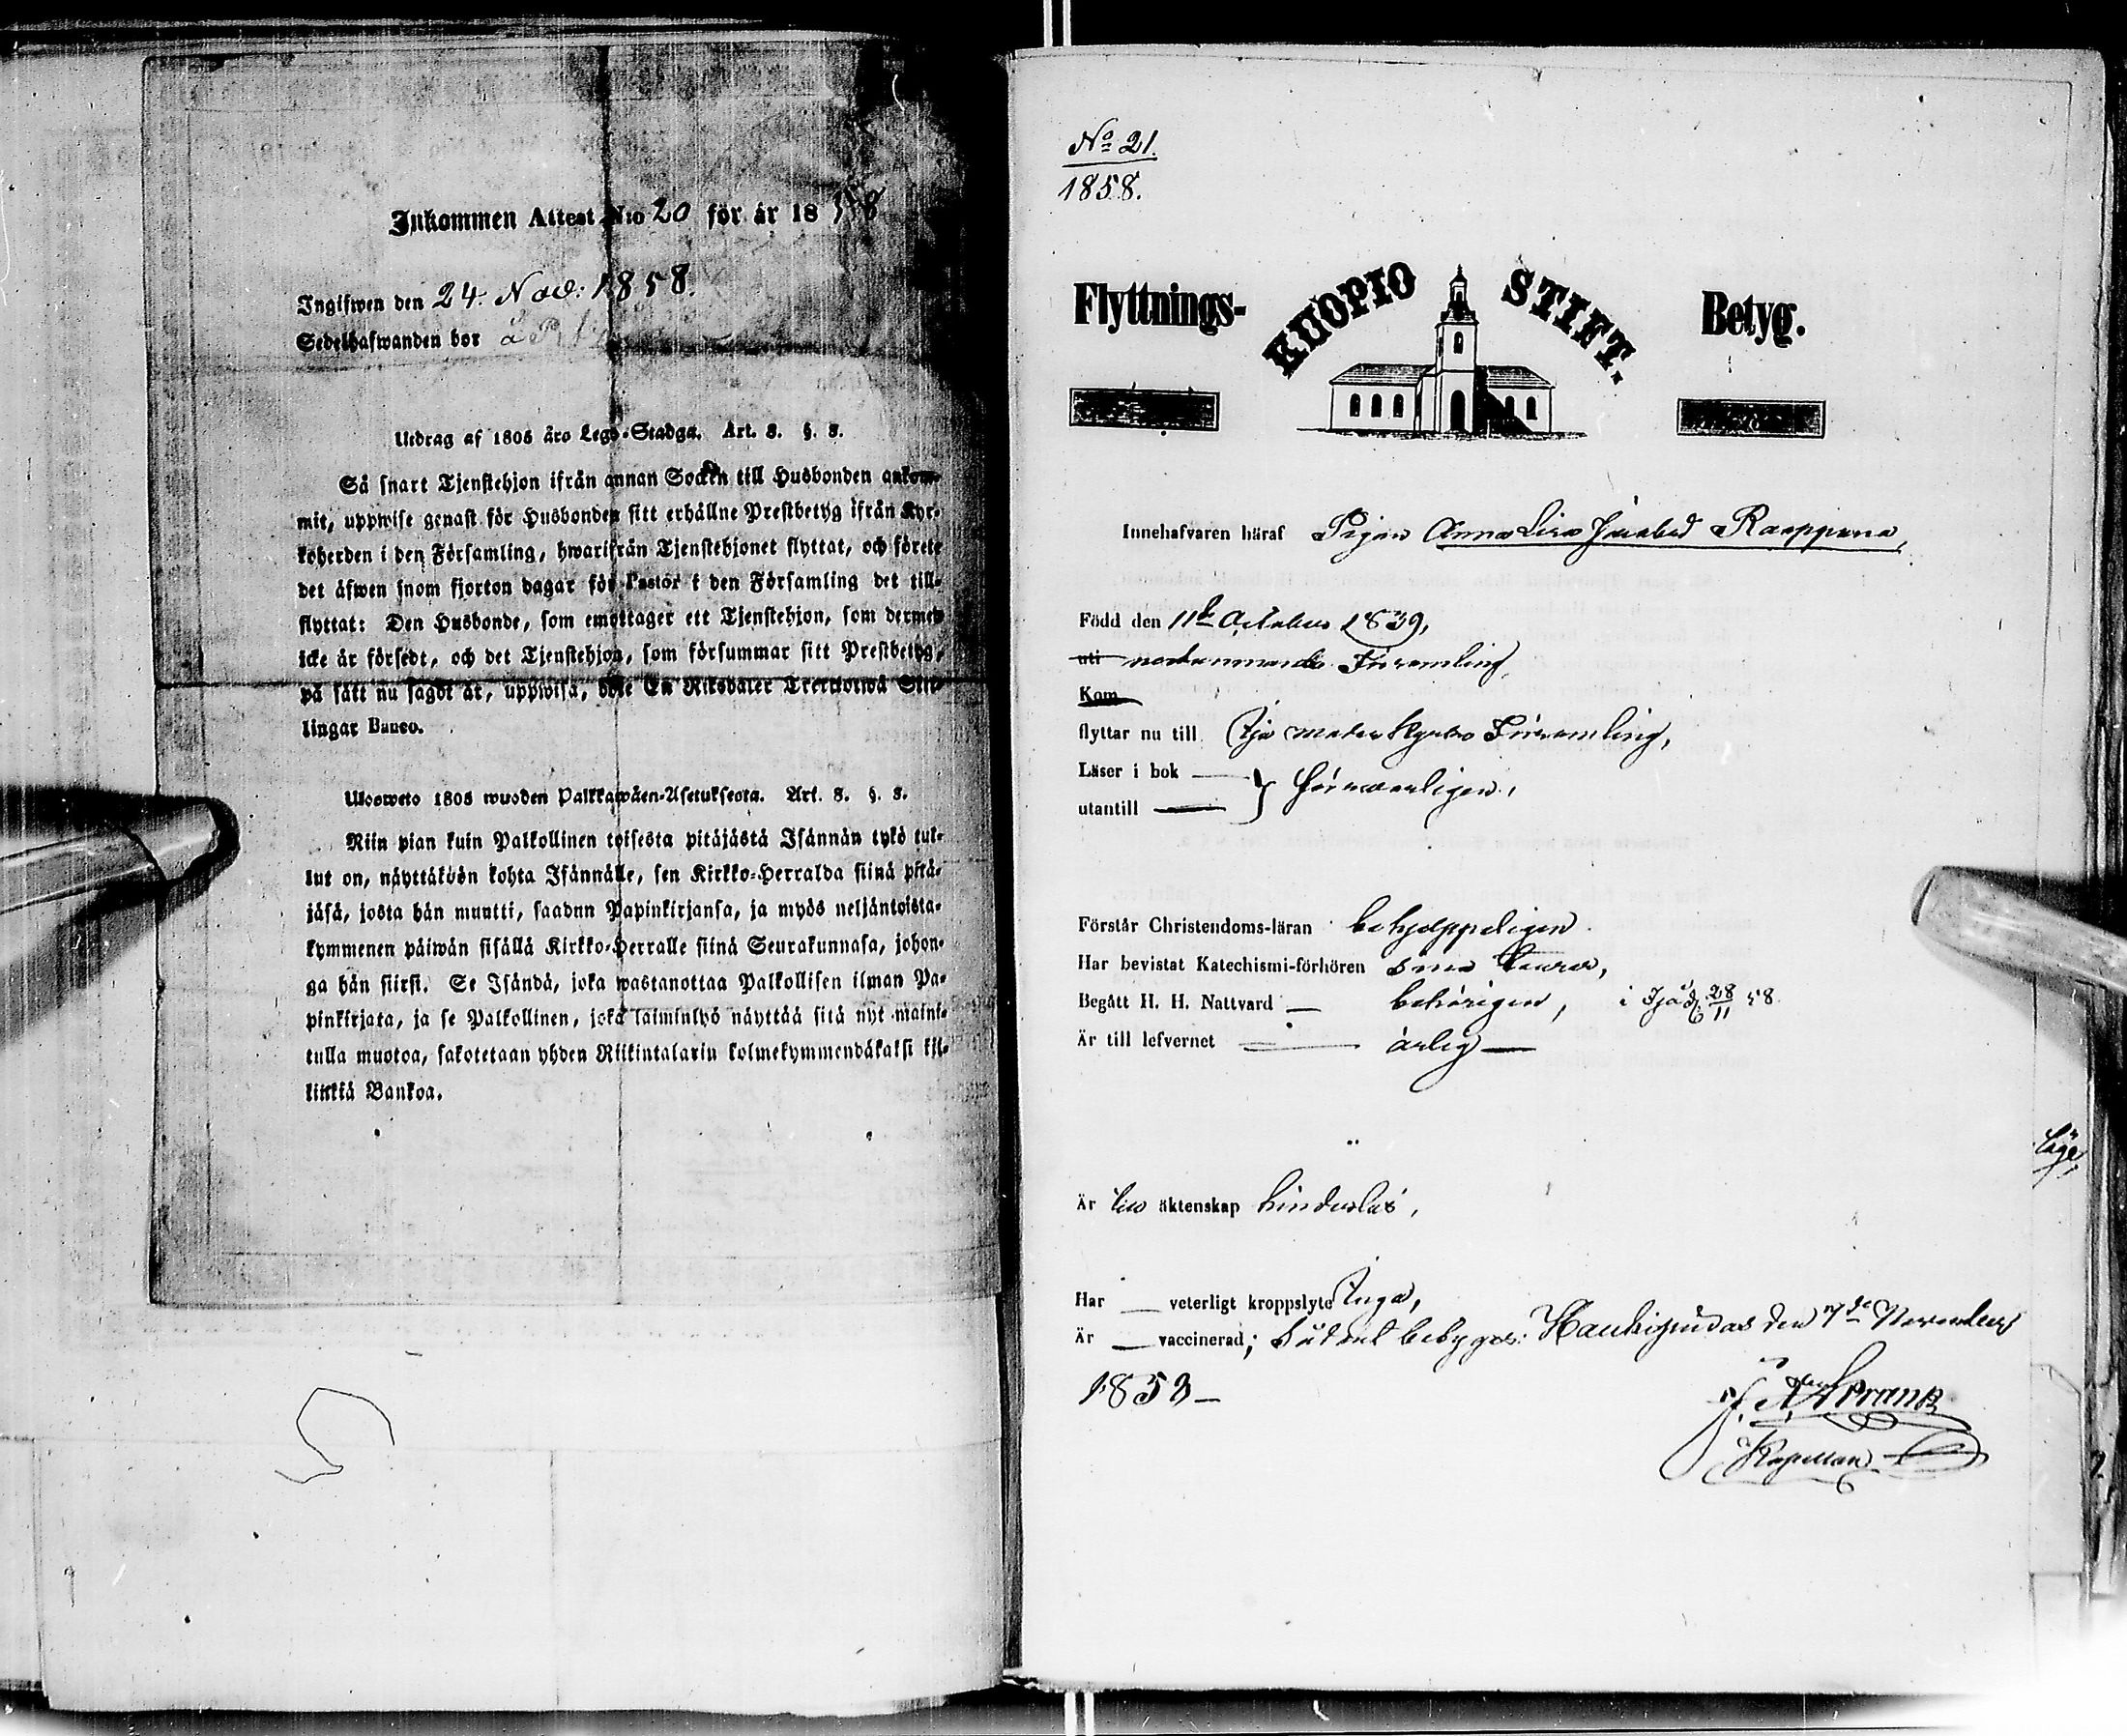 Inkommen Attest N:o 20 för år 1858
Ingifwen den 24. Nov: 1858.
Sedelhafwanden bor å
Utdrag af 1805 års Lego-Stadga. Art. 8. §. 8.
Så snart Tjenstehjon ifrån annan Socken till Husbonden ankom-
mit, uppwise genast för Husbonden sitt erhållne Prestbetyg ifrån Kyr-
koherden i den Församling, hwarifrån Tjenstehjonet flyttat, och förete
det äfwen inom fjorton dagar för Pastor i den Församling det till-
flyttat: Den Husbonde, som emottager ett Tjenstehjon, som dermed
icke är försedt, och det Tjenstehjon, som försummar sitt Prestbetyg,
på sätt nu sagdt är, uppwisa, böte En Riksdaler Trettiotwå Skil-
lingar Banco.
Ulosweto 1805 wuoden Palkkawäen-Asetuksesta. Art. 8. §. 8.
Niin pian kuin Palkollinen toisesta pitäjästä Isännän tykö tul-
lut on, näyttäköön kohta Isännälle, sen Kirkko-Herralda siinä pitä-
jäsä, josta hän muutti, saadun Papinkirjansa, ja myös neljäntoista-
kymmenen päiwän sisällä Kirkko-Herralle siinä Seurakunnasa, johon-
ga hän siirsi. Se Isändä, joka wastanottaa Palkollisen ilman Pa-
pinkirjata, ja se Palkollinen, joka laiminlyö näyttää sitä nyt maini-
tulla muotoa, sakotetaan yhden Riikintalarin kolmekymmendäkaksi kil-
linkiä Bankoa.
No 21.
1858.
Flyttnings- KUOPIO STIFT. Betyg.
Innehafvaren häraf Pigan Anna Lisa Jakobsd Raappana,
Född den 11te October 1839,
uti nedannämnde Församling,
Kom
flyttar nu till Ijo moderkyrko Församling,
Läser i bok
utantill försvarligen,
Förstår Christendoms-läran behjelpeligen
Har bevistat Katechismi-förhören sina
Begått H. H. Nattvard — behörigen, i Ijo d. 28/11 58
Är till lefvernet — ärlig —
Är till äktenskap hinderlös,
Har — veterligt kroppslyte Inga,
Är — vaccinerad; Sådant betygas: Haukipudas den 7de November
1858 —
Kapellan